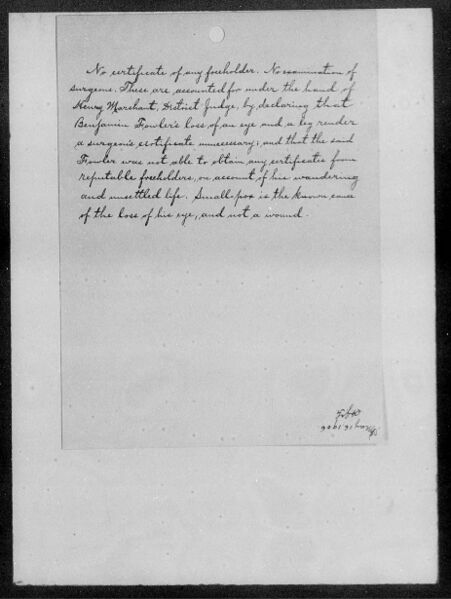 No certificate of any freeholder. No examination of
surgeons. These are accounted for under the hand of
Henry Marchant, District Judge, by declaring that
Benjamin Fowler's loss of an eye and a leg render
a surgeon's certificate unnecessary; and that the said
Fowler was not able to obtain any certificate from
reputable freeholders, on account of his wandering
and unsettled life. Small-pox is the known cause
of the loss of his eye, and not a wound.
May 16 1906